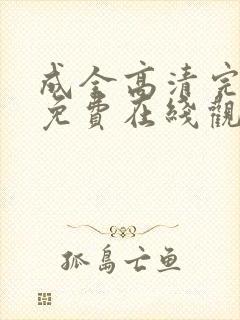 成全高清完
免費在綫觀
孤島亡鱼